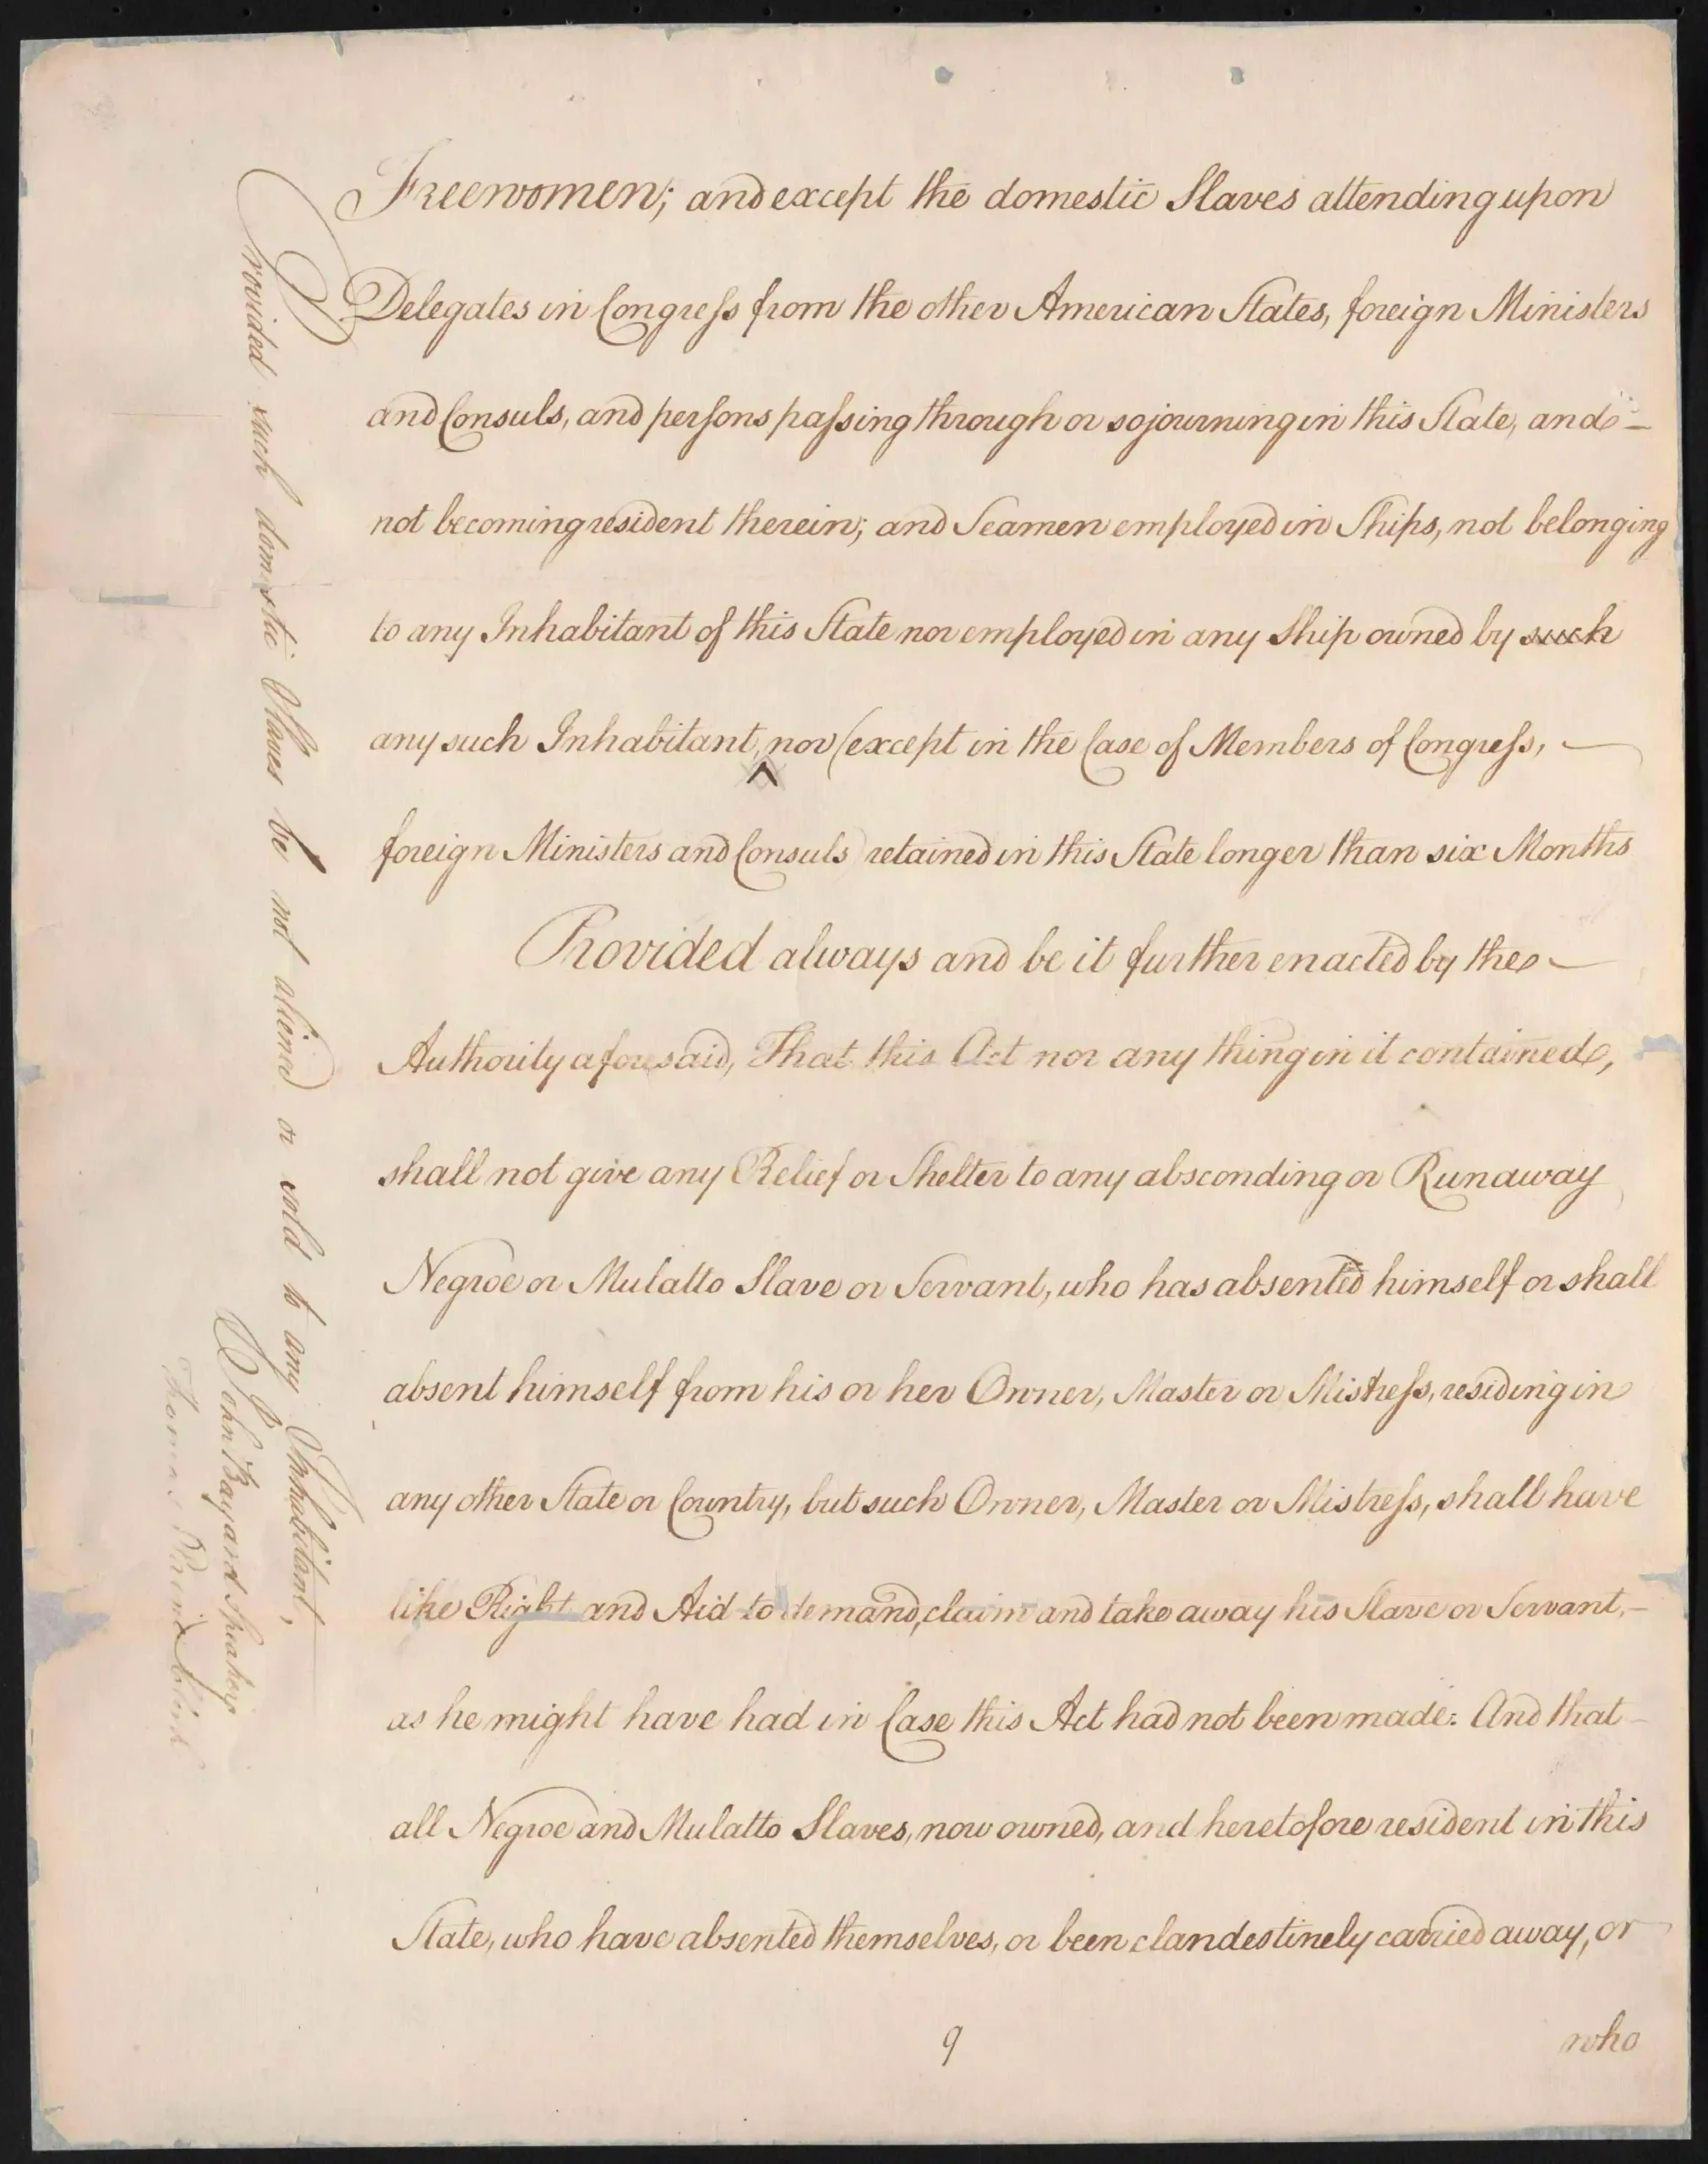 Freewomen; and except the domestic Slaves attending upon
Delegates in Congress from the other American States, foreign Ministers
and Consuls, and persons passing through or sojourning in this State, and –
not becoming resident therein; and Seamen employed in Ships, not belonging
to any Inhabitant of this State nor employed in any Ship owned by such
any such Inhabitant, nor (except in the Case of Members of Congress, –
^
foreign Ministers and Consuls) retained in this State longer than six Months
Provided always and be it further enacted by the –
Authority aforesaid, That this Act nor any thing in it contained,
shall not give any Relief or Shelter to any absconding or Runaway
Negroe or Mulatto Slave or Servant, who has absented himself or shall
absent himself from his or her Owner, Master or Mistress, residing in
any other State or Country, but such Owner, Master or Mistress, shall have
like Right and Aid to demand, claim and take away his Slave or Servant, –
as he might have had in Case this Act had not been made: And that –
all Negroe and Mulatto Slaves, now owned, and heretofore resident in this
State, who have absented themselves, or been clandestinely carried away, or
9
who
Provided such domestic Slaves be not aliened or sold to any Inhabitant,
John Bayard Speaker
Thomas Paine Clerk